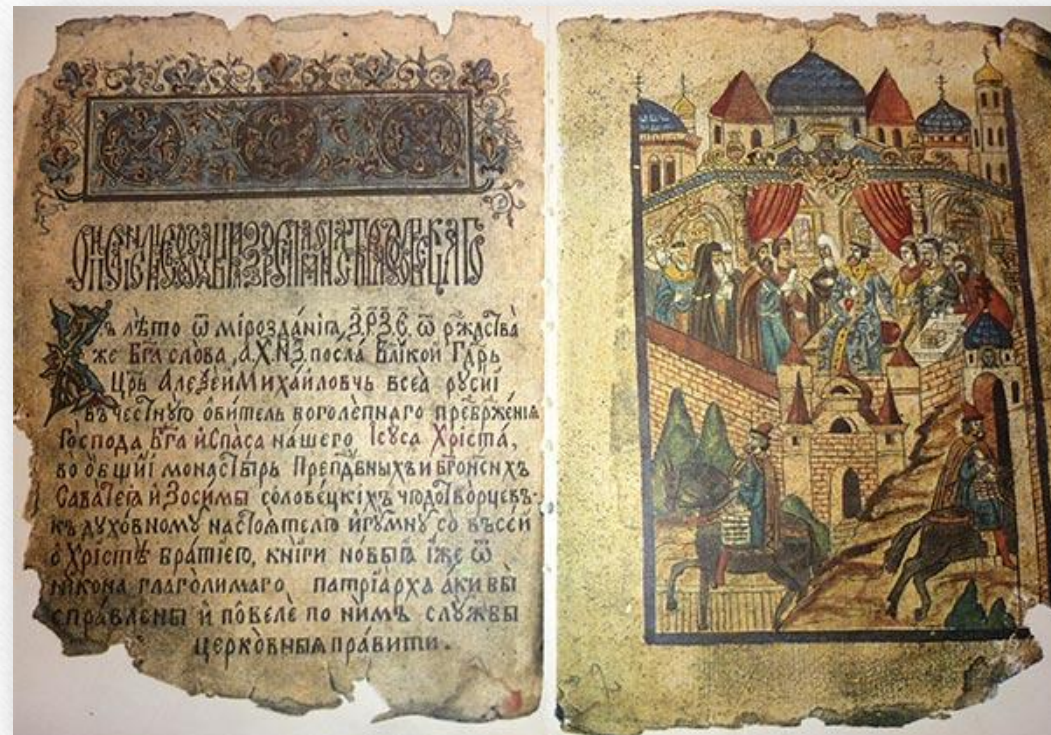 Въ лѣто ѿ мірозданіѧ ,З҃Р҃Ѯ҃Є҃, ѿ рждства
же Бг҃а слова ,а҃Х҃Н҃З҃ посла Вл҃ікой Гд҃рь
Цр҃ь Алеѯей Михаиловчь всеа русиі
въ честнꙋю обитель боголепнаго превр҃женія
Господа Бг҃а и Спаса нашего Ісуса Хріста,
во общиі монастырь Преп҃дбныхъ и бг҃оносн хъ
Саватеіа и Зосимы соловецкіхъ чюдотворцевъ.
къ духовному настоятелю игꙋмну со въсей
о Хрістѣ братіею, кніги новыѧ іже ѿ
никона глаголимаго патріарха аки бы
справлены и повеле по нимъ слꙋжбы
церковныѧ правити.